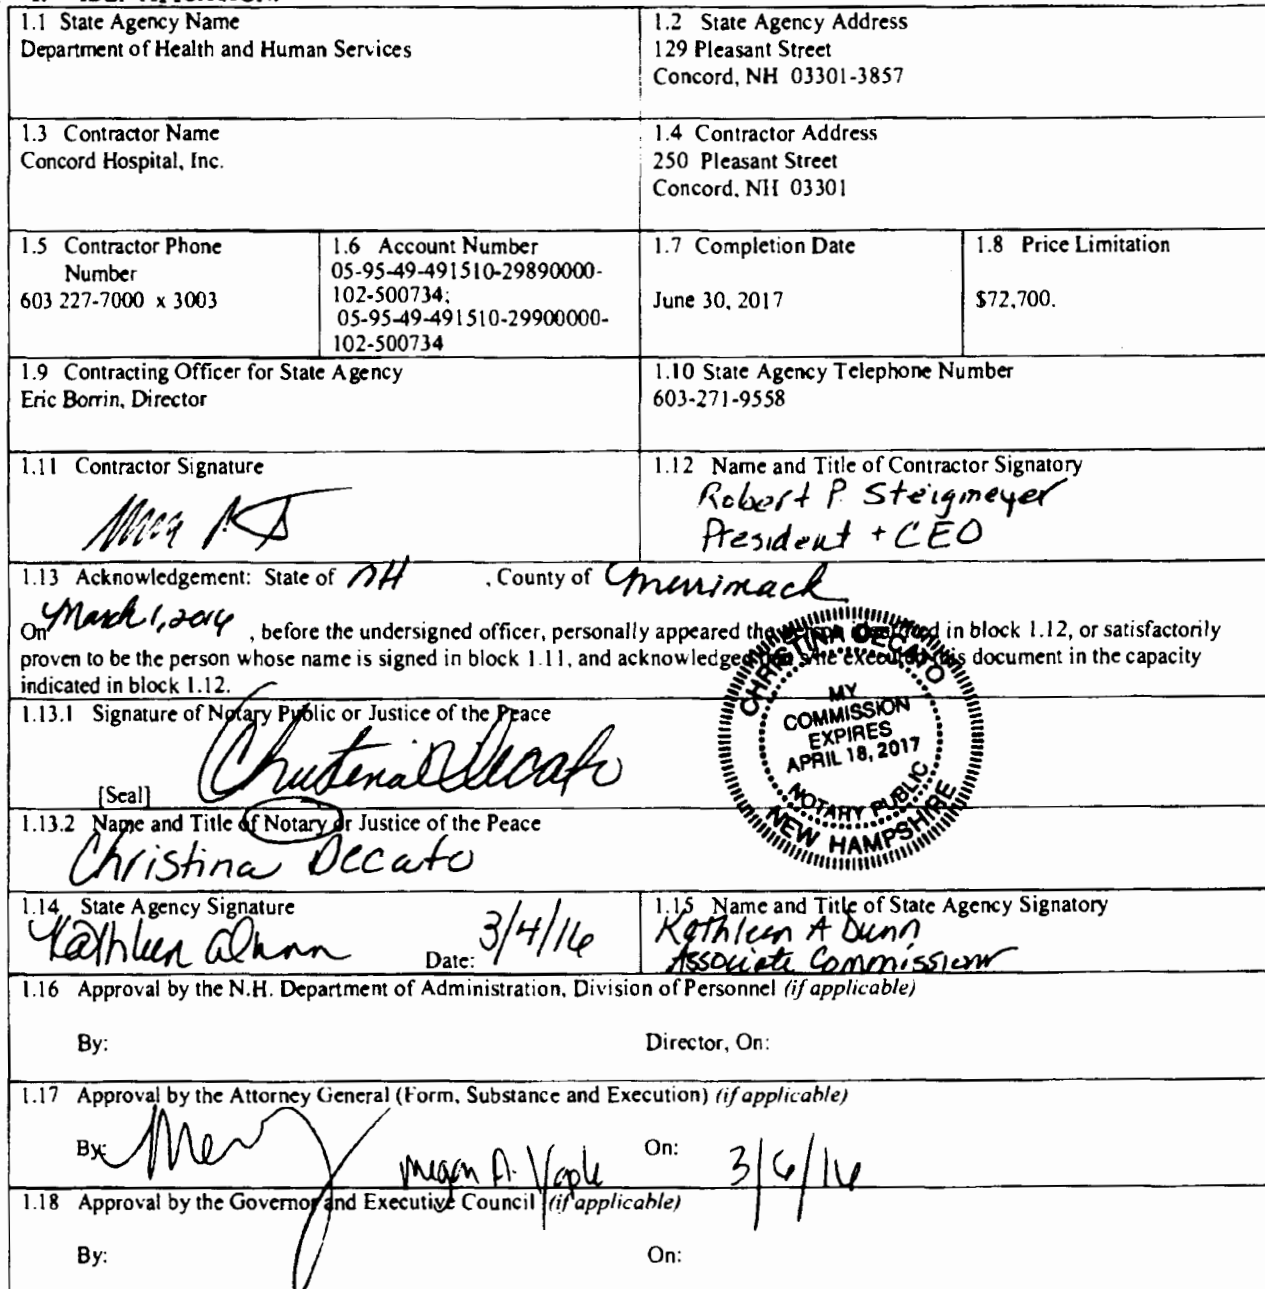 1.1 State Agency Name
Department of Health and Human Services
1.2 State Agency Address
129 Pleasant Street
Concord, NH 03301-3857
1.3 Contractor Name
Concord Hospital, Inc.
1.4 Contractor Address
250 Pleasant Street
Concord, NH 03301
1.5 Contractor Phone
Number
603 227-7000 x 3003
1.6 Account Number
05-95-49-491510-29890000-
102-500734;
05-95-49-491510-29900000-
102-500734
1.7 Completion Date
June 30, 2017
1.8 Price Limitation
$72,700.
1.9 Contracting Officer for State Agency
Eric Borrin, Director
1.10 State Agency Telephone Number
603-271-9558
1.11 Contractor Signature
1.12 Name and Title of Contractor Signatory
Robert P. Steigmeyer
President + CEO
1.13 Acknowledgement: State of NH , County of Merrimack
On March 1, 2016 , before the undersigned officer, personally appeared the in block 1.12, or satisfactorily
proven to be the person whose name is signed in block 1.11, and acknowledged executed this document in the capacity
indicated in block 1.12.
CHRISTINA DECATO
MY
COMMISSION
EXPIRES
APRIL 18, 2017
NOTARY PUBLIC
NEW HAMPSHIRE
1.13.1 Signature of Notary Public or Justice of the Peace
Christina Decato
[Seal]
1.13.2 Name and Title of Notary or Justice of the Peace
Christina Decato
1.14 State Agency Signature
Kathleen A Dunn Date: 3/4/16
1.15 Name and Title of State Agency Signatory
Kathleen A Dunn
Associate Commissioner
1.16 Approval by the N.H. Department of Administration, Division of Personnel (if applicable)
By: Director, On:
1.17 Approval by the Attorney General (Form, Substance and Execution) (if applicable)
By: Megan A. On: 3/6/16
1.18 Approval by the Governor and Executive Council (if applicable)
By: On: